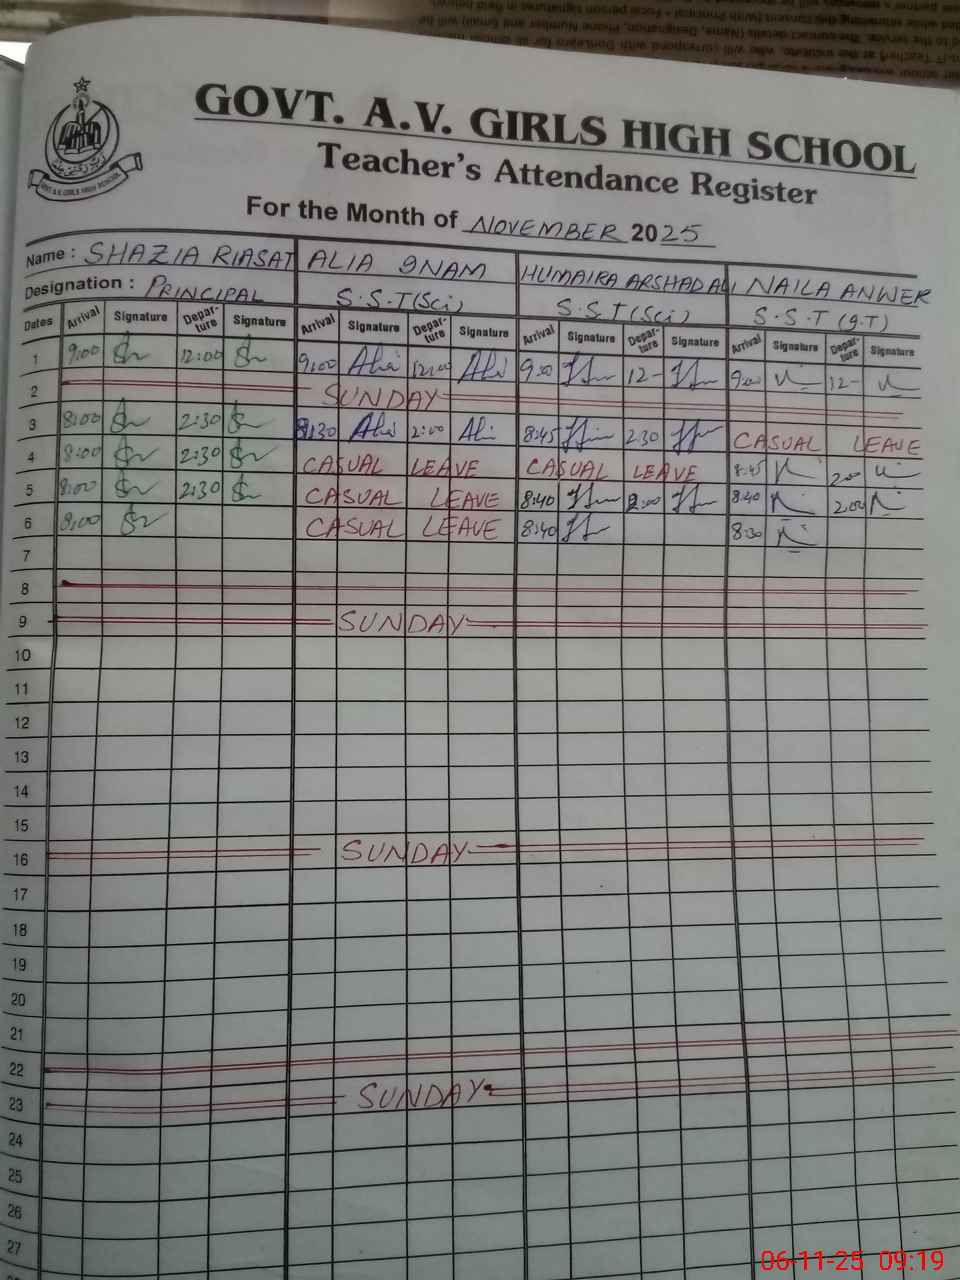 GOVT. A.V. GIRLS HIGH SCHOOL
Teacher's Attendance Register
For the Month of NOVEMBER 2025
GOVT A.V. GIRLS HIGH SCHOOL
Name : SHAZIA RIASAT ALIA INAM HUMAIRA ARSHAD ALI NAILA ANWER
Designation : PRINCIPAL S.S.T(Sci) S.S.T(Sci) S.S.T (g.T)
Dates Arrival Signature Depar-ture Signature Arrival Signature Depar-ture Signature Arrival Signature Depar-ture Signature Arrival Signature Depar-ture Signature
1 9:00 12:00 9:00 Alia 12:00 Alia 9:00 12- 9:00 12-
2 SUNDAY
3 8:00 2:30 8:30 Alia 2:00 Alia 8:45 2:30 CASUAL LEAVE
4 8:00 2:30 CASUAL LEAVE CASUAL LEAVE 8:45 2:00
5 8:00 2:30 CASUAL LEAVE 8:40 2:00 8:40 2:00
6 8:00 CASUAL LEAVE 8:40 8:30
7
8
9 SUNDAY
10
11
12
13
14
15
16 SUNDAY
17
18
19
20
21
22
23 SUNDAY
24
25
26
27
06-11-25 09:19